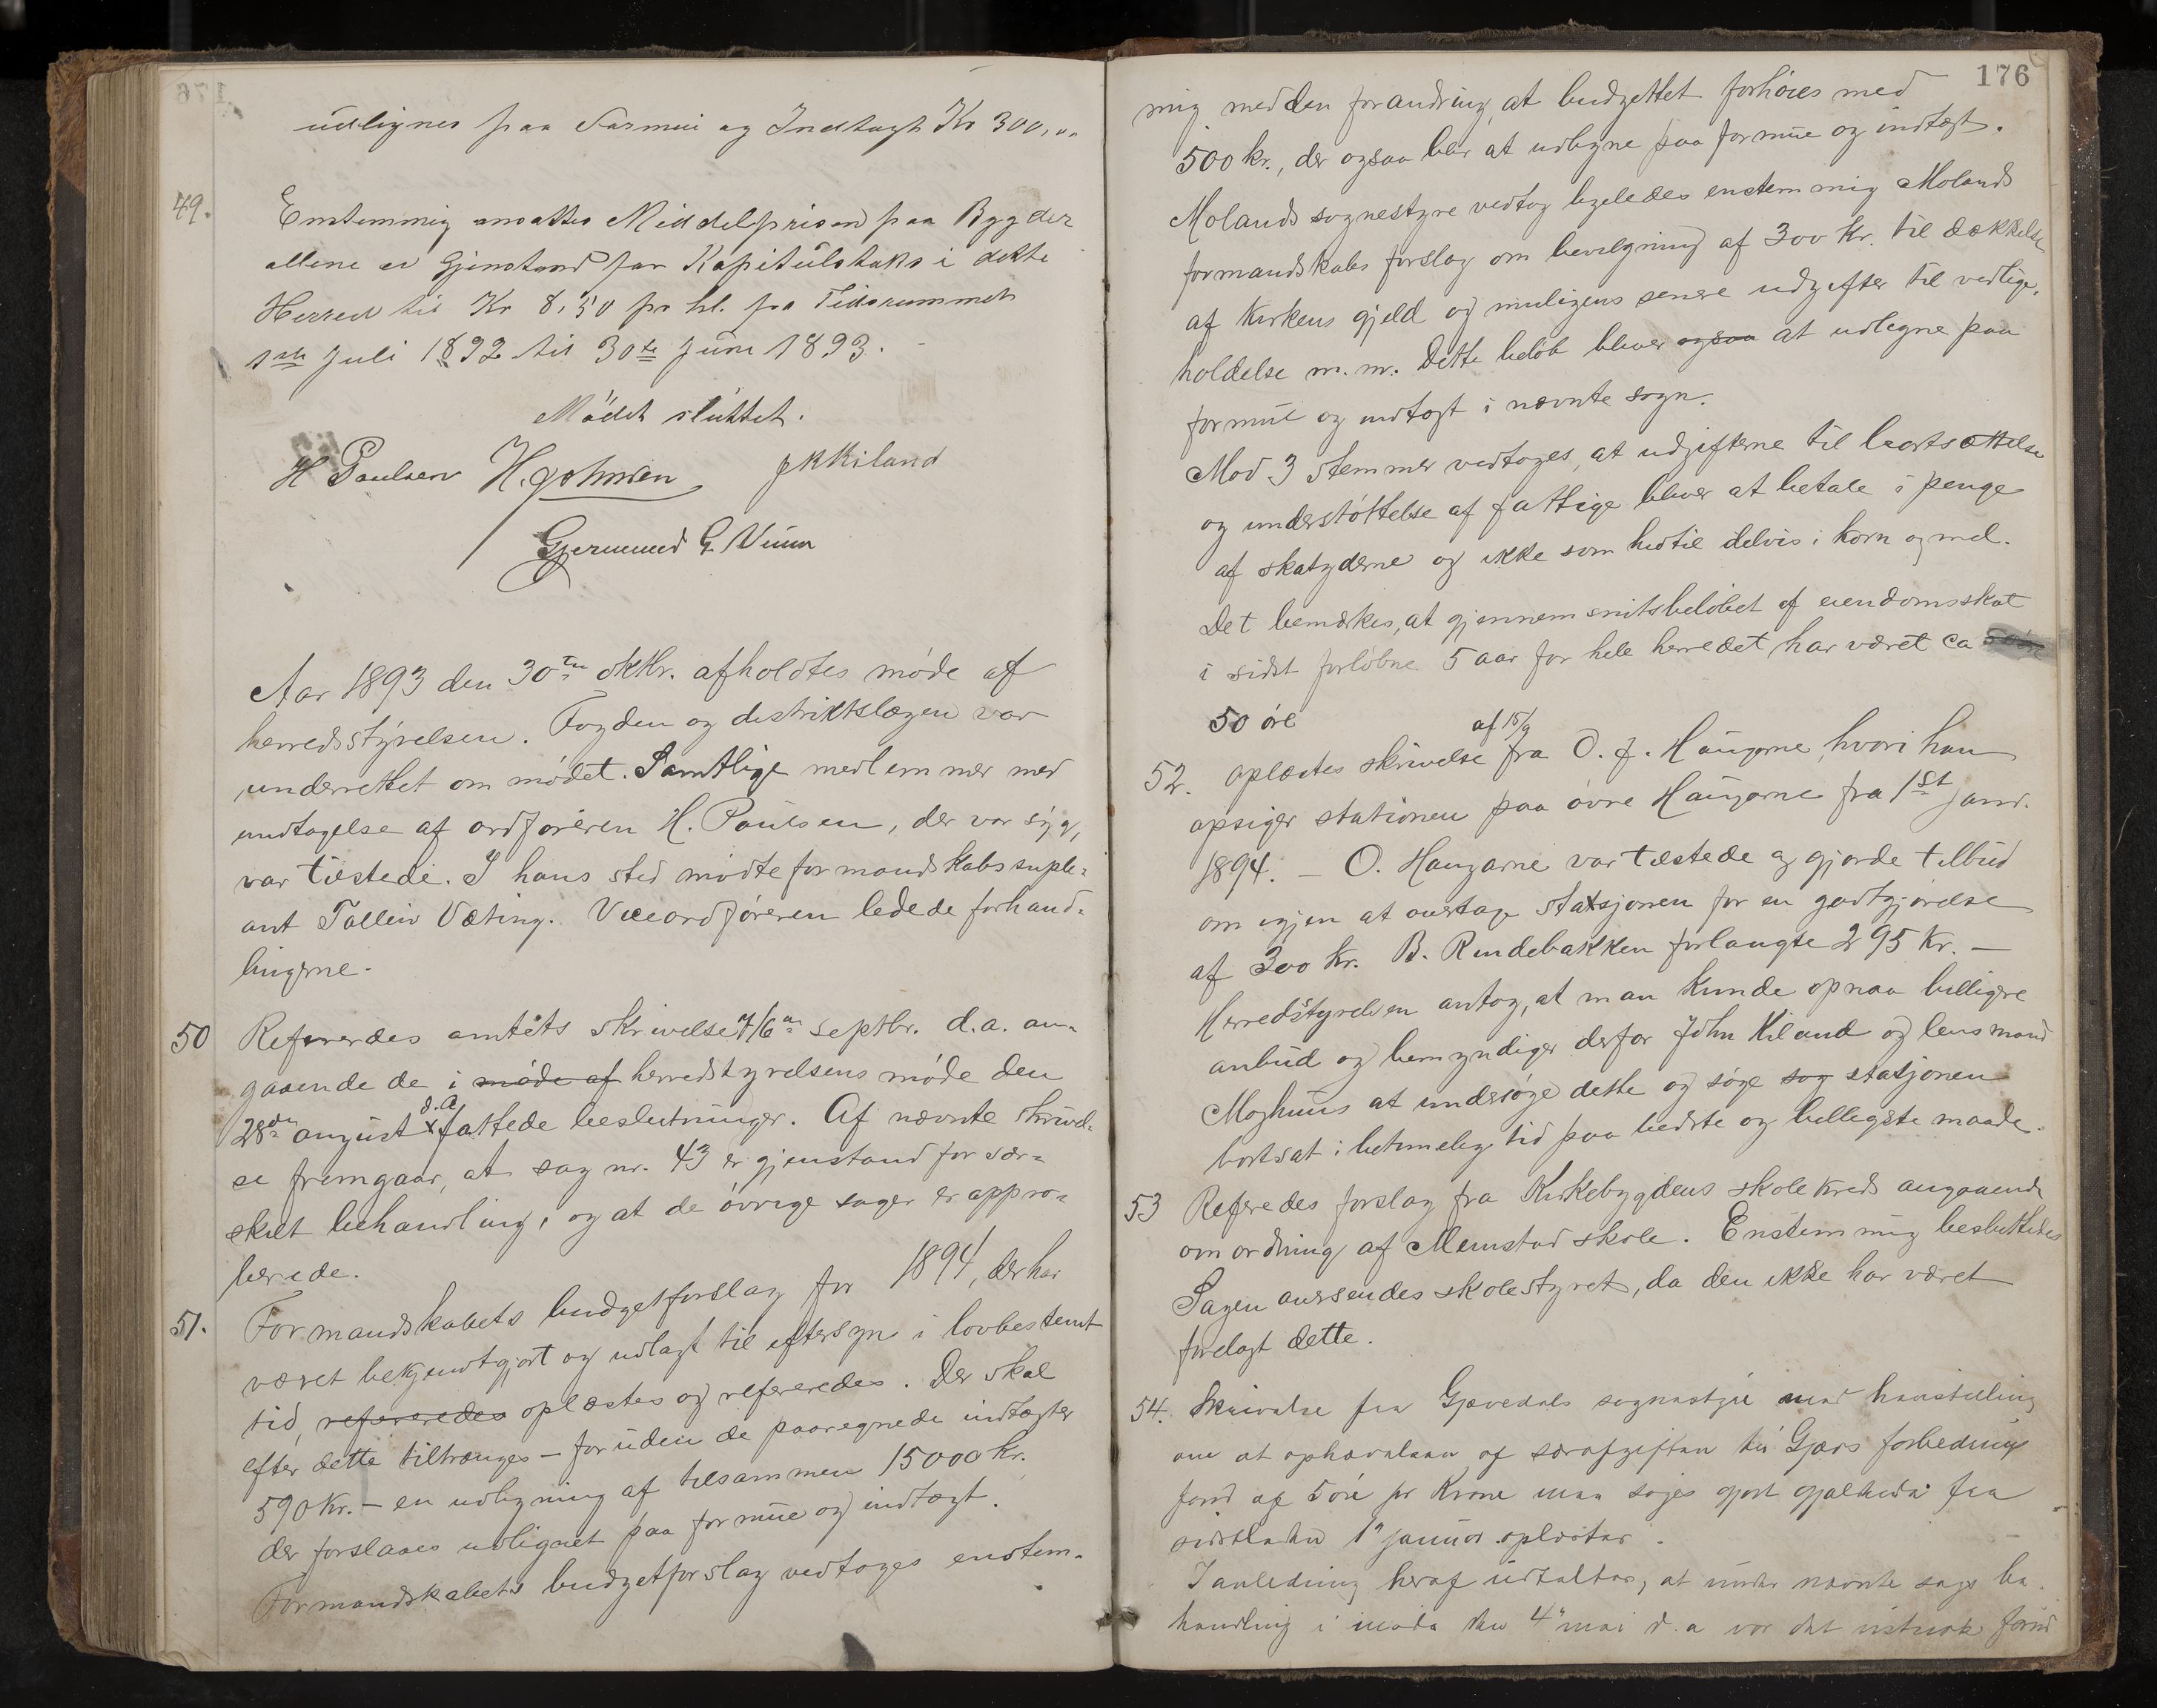 udlignes paa Formui og Indtægt Kr 300,00
49.
Enstemmig ansattes Middelprisen paa Byg der
allene er Gjenstand for Kapitulstakst i dette
Herred til Kr 8,50 pr hl. for Tidsrummet
1ste Juli 1892 til 30te Juni 1893.
Mödet sluttet.
H Paulsen H. Johnsen J K Kiland
Gjermund G. Vimm
Aar 1893 den 30te oktbr. afholdtes möde af
herredsstyrelsen. Fogden og distriktslægen var
underrettet om mödet. Samtlige medlemmer med
undtagelse af ordföreren H. Paulsen, der var syg,
var tilstede. I hans sted mödte formandskabssuple-
ant Talleiv Væting. Viceordföreren ledede forhand-
lingerne.
50 Refereredes amtets skrivelse af 6te septbr. d.a. an-
gaaende de i möde af herredstyrelsens möde den
28de august d.a. fattede beslutninger. Af nævnte skrivel-
se fremgaar, at sag nr. 43 er gjenstand for sær-
skilt behandling, og at de övrige sager er appro-
berede.
51. Formandskabets budgetforslag for 1894, der har
været bekjendtgjort og udlagt til eftersyn i lovbestemt
tid, refereredes oplæstes og refereredes. Der skal
efter dette tiltrænges - foruden de paaregnede indtægter
590 Kr. - en udligning af tilsammen 15000 kr.
der forslaaes udlignet paa formue og indtægt.
Formandskabets budgetforslag vedtoges enstem-
176
mig med den forandring, at budgettet forhöies med
500 kr., der ogsaa blir at udligne paa formue og indtægt.
Molands sognestyre vedtog ligeledes enstemmig Molands
formandskabs forslag om bevilgning af 300 kr. til dækkelse
af kirkens gjeld og muligens senere udgifter til vedlige-
holdelse m.m. Dette belöb bliver ogsaa at udligne paa
formue og indtægt i nævnte sogn.
Mod 3 stemmer vedtoges, at udgifterne til bortsættelse
og understöttelse af fattige bliver at betale i penge
af skatyderne og ikke som hidtil delvis i korn og mel.
Det bemærkes, at gjennemsnitsbelöbet af eiendomsskat
i sidst forlöbne 5 aar for hele herredet har været ca
50 öre
52. Oplæstes skrivelse af 15/9 fra O. J. Haugarne, hvori han
opsiger stationen paa övre Haugarne fra 1st janr.
1894. - O. Haugarne var tilstede og gjorde tilbud
om igjen at overtage stasjonen for en godtgjörelse
af 300 kr. B. Rindebakken forlangte 295 kr. -
Herredstyrelsen antog, at man kunde opnaa billigere
anbud og bemyndiger derfor John Kiland og lensmand
Moghuus at undersöge dette og söge sog stasjonen
bortsat i betimelig tid paa bedste og billigste maade.
53 Refere des forslag fra Kirkebygdens skolekreds angaaende
omordning af Memstad skole. Enstemmig besluttedes
Sagen oversendes skolestyret, da den ikke har været
forelagt dette.
54. Skrivelse fra Gjøvedals sognestyre med henstilling
om at ophævelsen af særafgiften til Gjørs forbedrings
fond af 5 öre pr Krone maa söges gjort gjældende fra
sidstleden 1ste januar oplæstes.
I anledning heraf udtaltes, at under nævnte sags be-
handling i møde den 4de mai d.a var det